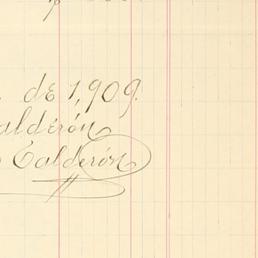 de 1,909.
alderón
Calderón